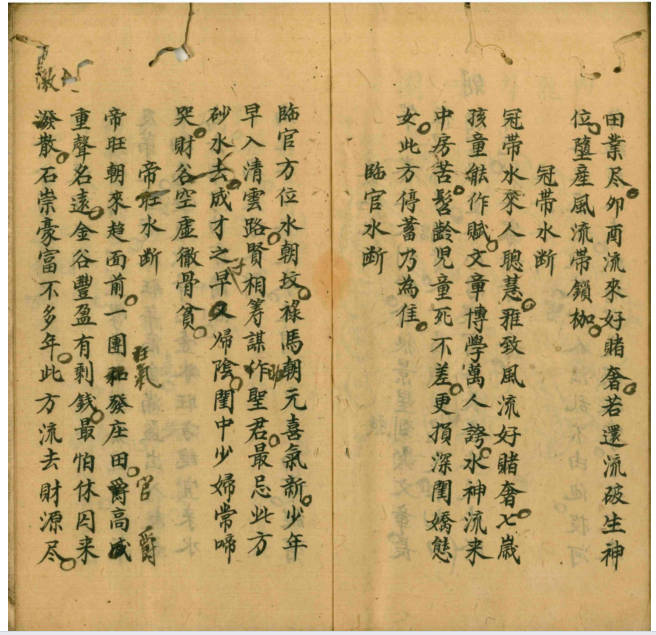 田業尽卯酉流來好賭奢若還流破生神
位墮産風流帯鎖枷
冠帯水断
冠帯水來人聰慧雅致風流好賭奢七歳
孩童能作賦文章博學萬人誇水神流来
中房苦髫齡児童死不差更損深閨嬌態
女此方停蓄乃為佳
臨官水断
臨官方位水朝坟禄馬朝元喜氣新少年
早入清雲路賢相籌謀作聖君最忌此方
砂水去成才之早又婦陰閨中少婦常啼
哭財谷空虚徹骨貧
帝旺水断
帝旺朝來趋面前一團發庄田爵高威
旺氣
官爵
重聲名遠金谷豐盈有剰銭最怕休囚来
潑散石崇豪富不多年此方流去財源尽
激